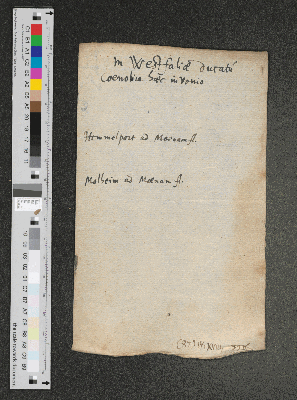 in Westfaliæ ducatu
Coenobia hæc invenio
Hemmelport ad Moenam fl.
Malheim ad Moenam fl.